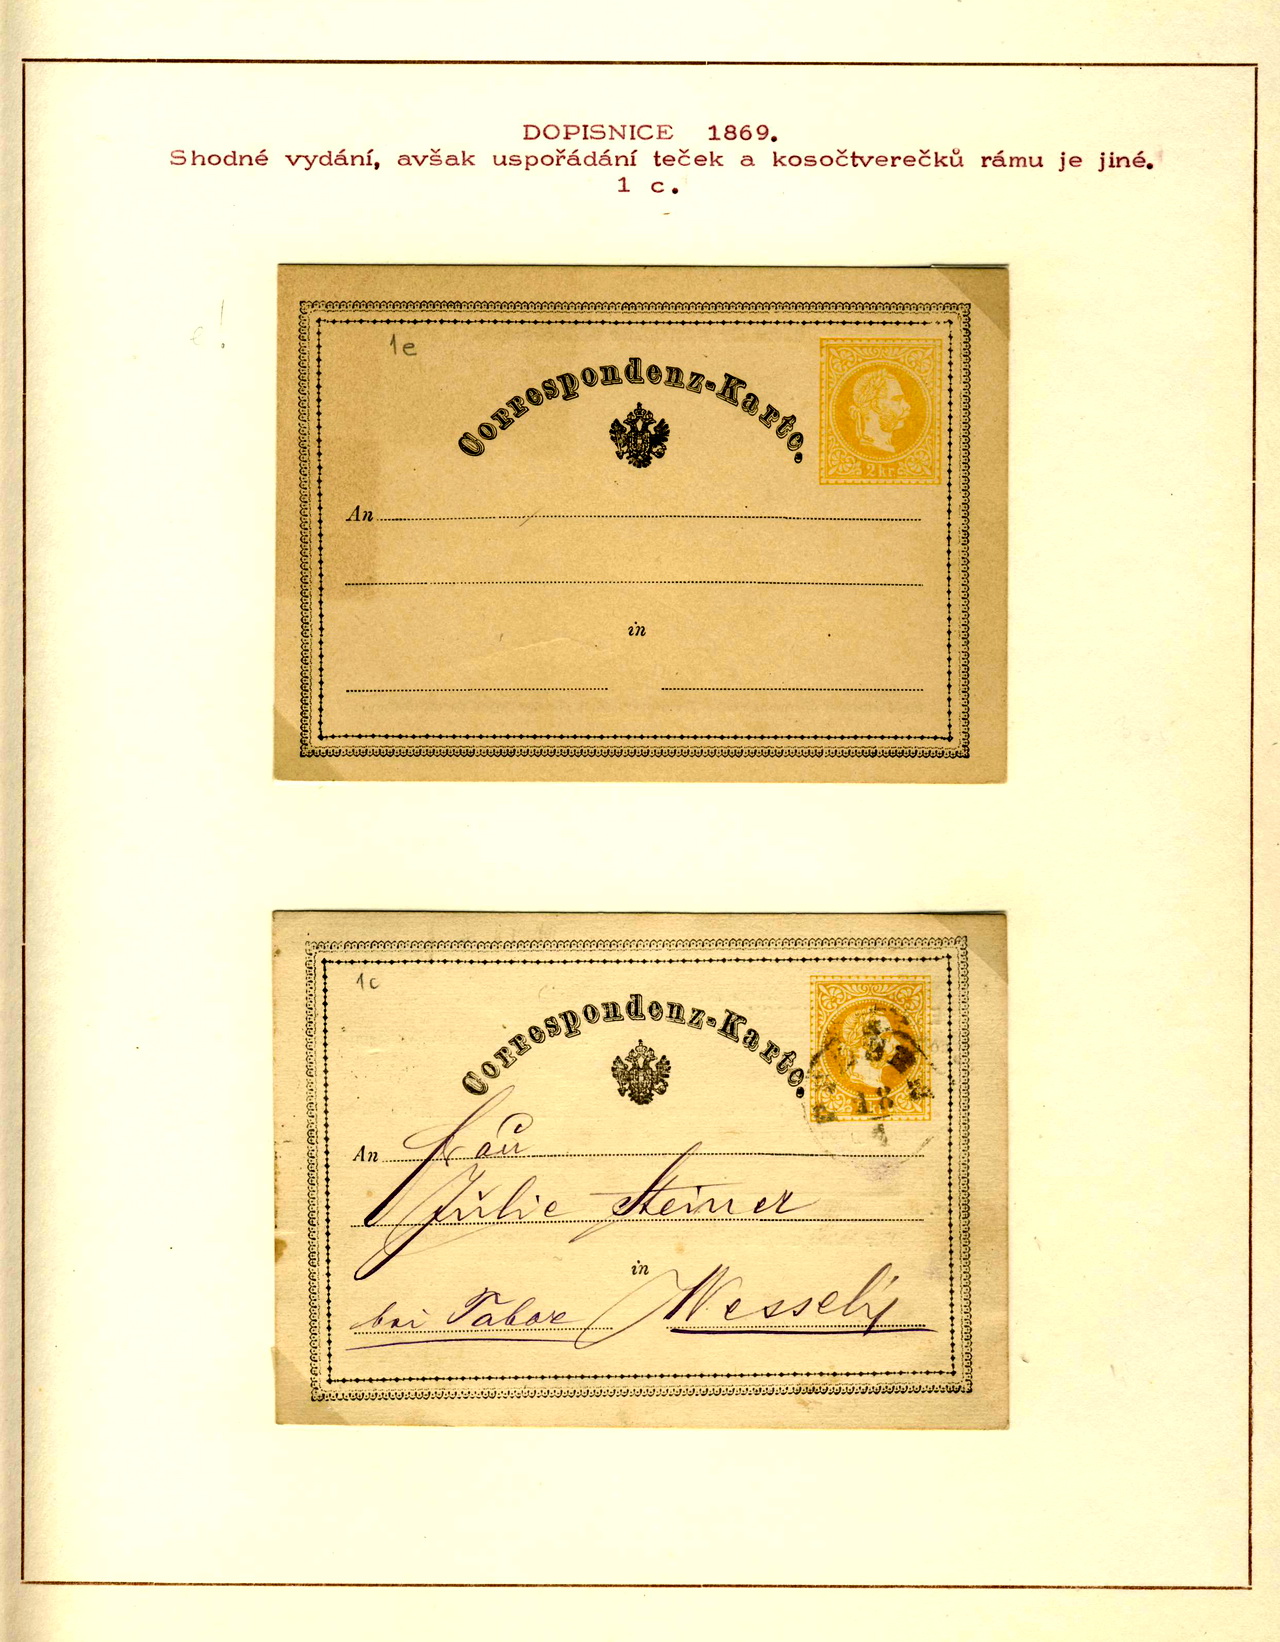 DOPISNICE 1869.
Shodné vydání, avšak uspořádání teček a kosočtverečků rámu je jiné.
1 c.
1e
Correspondenz-Karte.
2 kr.
An
in
1c
Correspondenz-Karte.
18
An
Julie Steiner
in
bei Tabor Wessely